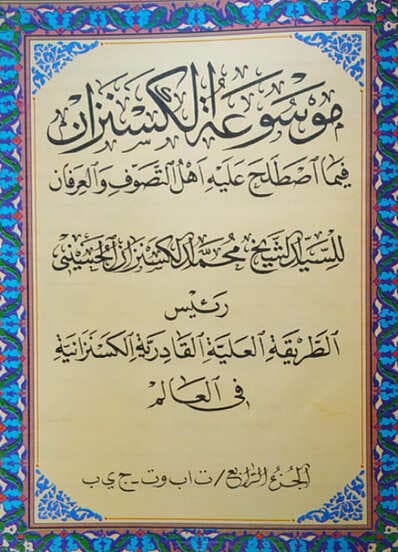 موسوعة الكسنزان
فيما اصطلح عليه اهل التصوف والعرفان
للسيد الشيخ محمد الكسنزان الحسيني
رئيس
الطريقة العلية القادرية الكسنزانية
في العالم
الجزء الرابع / ت ا ب و ت - ج ي ب